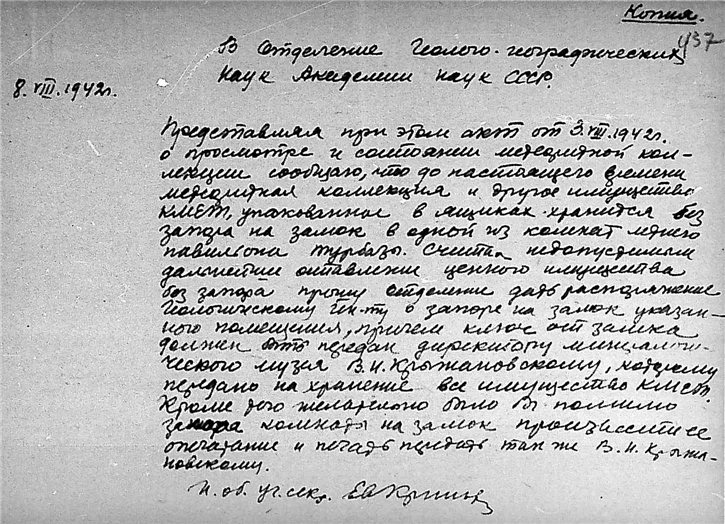 Копия.
437
В Отделение Геолого-географических
Наук Академии наук СССР.
8.VIII.1942г.
Представляя при этом акт от 3.VIII.1942г.
о просмотре и состоянии метеоритной кол-
лекции сообщаю, что до настоящего времени
метеоритная коллекция и другое имущество
КМЕТ, упакованное в ящиках хранится без
запора на замок в одной из комнат летнего
павильона турбазы. Считая недопустимым
дальнейшее оставление ценного имущества
без запора прошу Отделение дать распоряжение
Геологическому Ин-ту о запоре на замок указан-
ного помещения, причем ключ от замка
должен быть передан директору минералоги-
ческого музея В.И. Крыжановскому, которому
передано на хранение все имущество КМЕТ.
Кроме того желательно было бы помимо
запора комнаты на замок произвести ее
опечатание и печать передать также В.И. Крыжа-
новскому.
И. об. уч. секр.